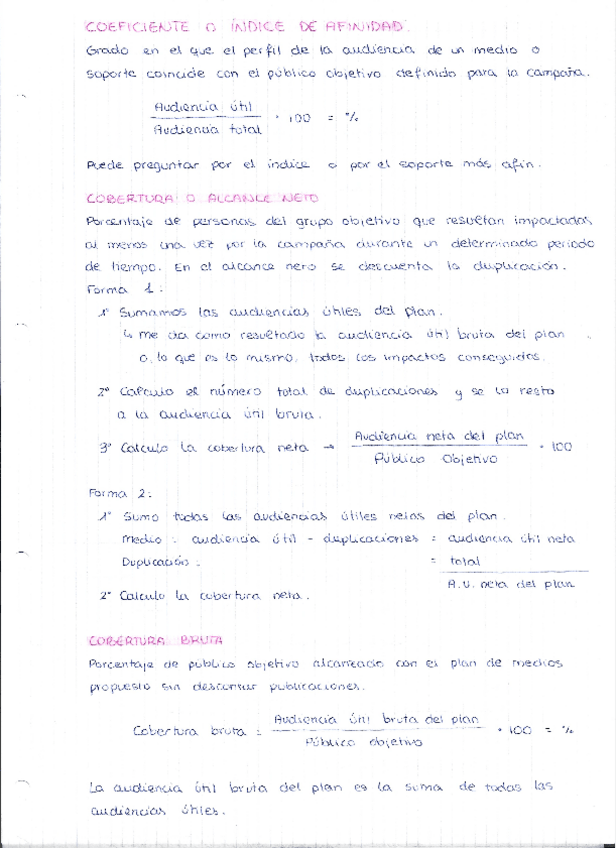 COEFICIENTE O ÍNDICE DE AFINIDAD.
Grado en el que el perfil de la audiencia de un medio o
soporte coincide con el público objetivo definido para la campaña.
Audiencia útil
Audiencia total
· 100 = %
Puede preguntar por el índice o por el soporte más afín.
COBERTURA O ALCANCE NETO
Porcentaje de personas del grupo objetivo que resultan impactadas
al menos una vez por la campaña durante un determinado periodo
de tiempo. En el alcance neto se descuenta la duplicación.
Forma 1:
1º Sumamos las audiencias útiles del plan.
↳ me da como resultado la audiencia útil bruta del plan
o, lo que es lo mismo, todos los impactos conseguidos.
2º Calculo el número total de duplicaciones y se lo resto
a la audiencia útil bruta.
3º Calculo la cobertura neta →
Audiencia neta del plan
Público Objetivo
· 100
Forma 2:
1º Sumo todas las audiencias útiles netas del plan.
Medio : audiencia útil - duplicaciones = audiencia útil neta
Duplicación : = total
A.U. neta del plan
2º Calculo la cobertura neta.
COBERTURA BRUTA
Porcentaje de público objetivo alcanzado con el plan de medios
propuesto sin descontar publicaciones.
Cobertura bruta :
Audiencia útil bruta del plan
Público objetivo
· 100 = %
La audiencia útil bruta del plan es la suma de todas las
audiencias útiles.